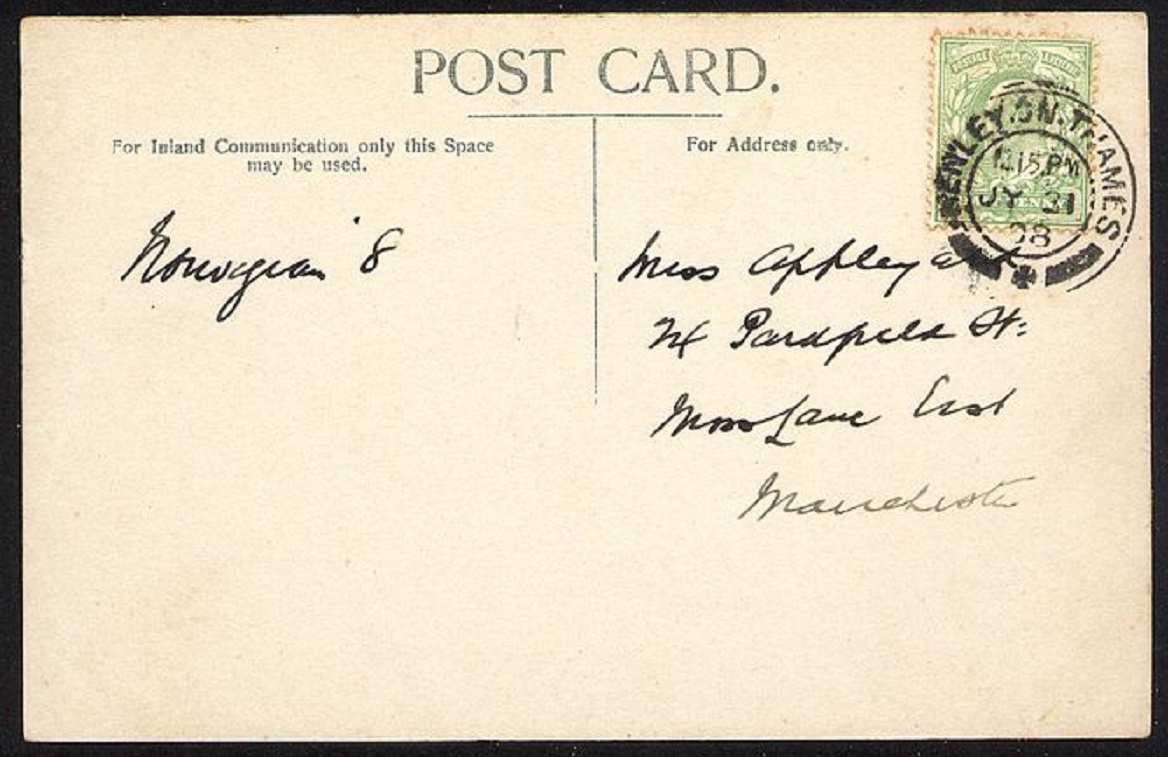 POST CARD.
For Inland Communication only this Space
may be used.
For Address only.
HENLEY.ON.THAMES
15.PM
JY 31
08
Norwegian 8
Miss Appleyard
St:
Moss Lane East
Manchester